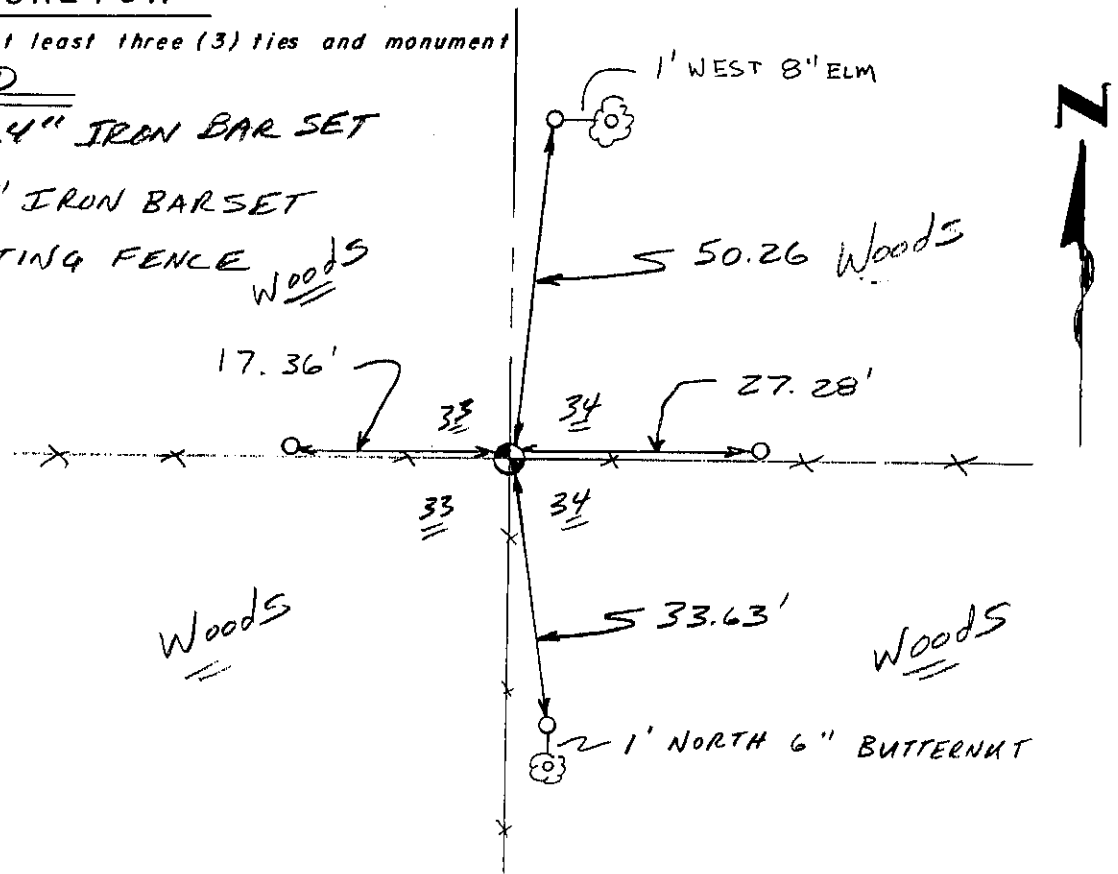 t least three (3) ties and monument
1' WEST 8" ELM
N
4" IRON BAR SET
" IRON BAR SET
TING FENCE
Woods
50.26 Woods
17.36'
27.28'
33 34
33 34
Woods
33.63'
Woods
1' NORTH 6" BUTTERNUT